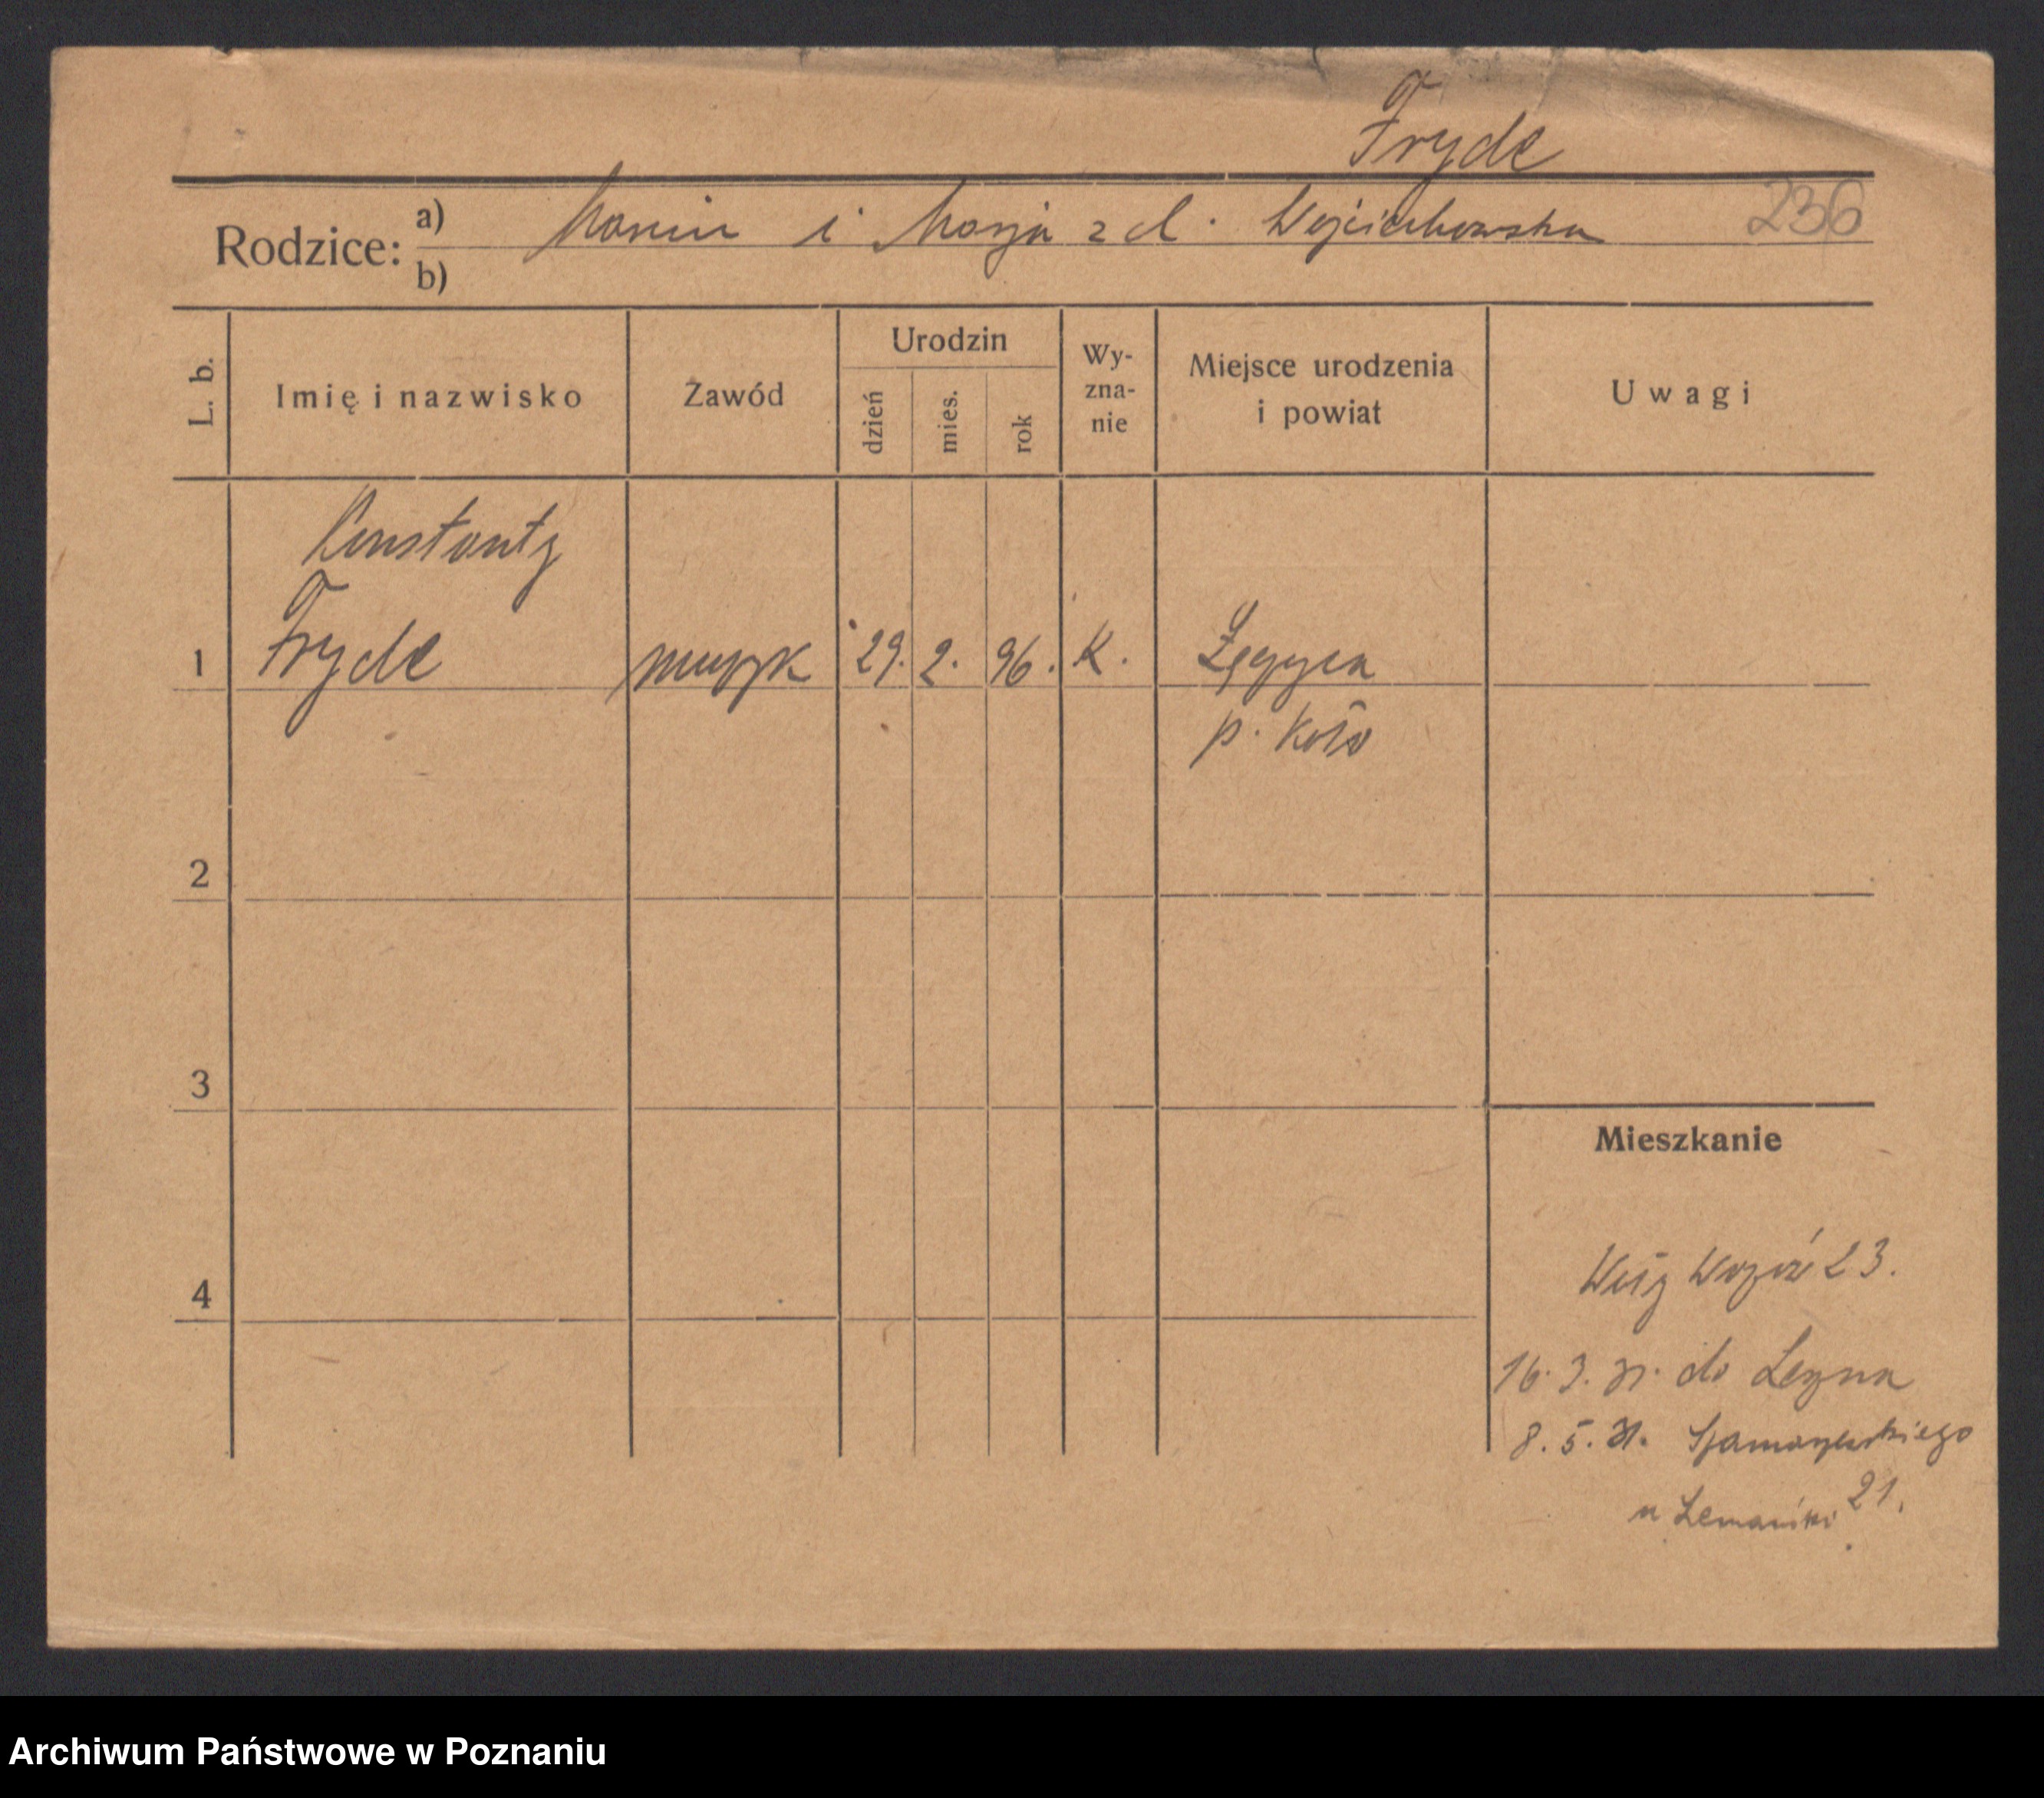 Fryde
236
Rodzice: a) Marcin i Marja z d. Wojciechowska
b)
L. b. Imię i nazwisko Zawód Urodzin dzień mies. rok Wy-zna-nie Miejsce urodzenia i powiat Uwagi
Konstanty
1 Fryde muzyk 29. 2. 96. K.
p. Koło
2
3
Mieszkanie
23.
4
16. 3. 31. do
8. 5. 31. Szamarzewskiego
21.
Archiwum Państwowe w Poznaniu